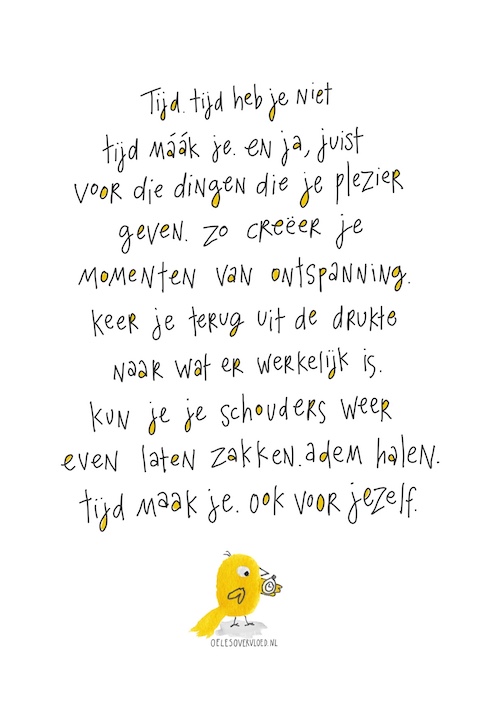 Tijd. tijd heb je niet
tijd máák je. en ja, juist
voor die dingen die je plezier
geven. zo creëer je
momenten van ontspanning.
keer je terug uit de drukte
naar wat er werkelijk is.
kun je je schouders weer
even laten zakken. adem halen.
tijd maak je. ook voor jezelf.
OELESOVERVLOED.NL